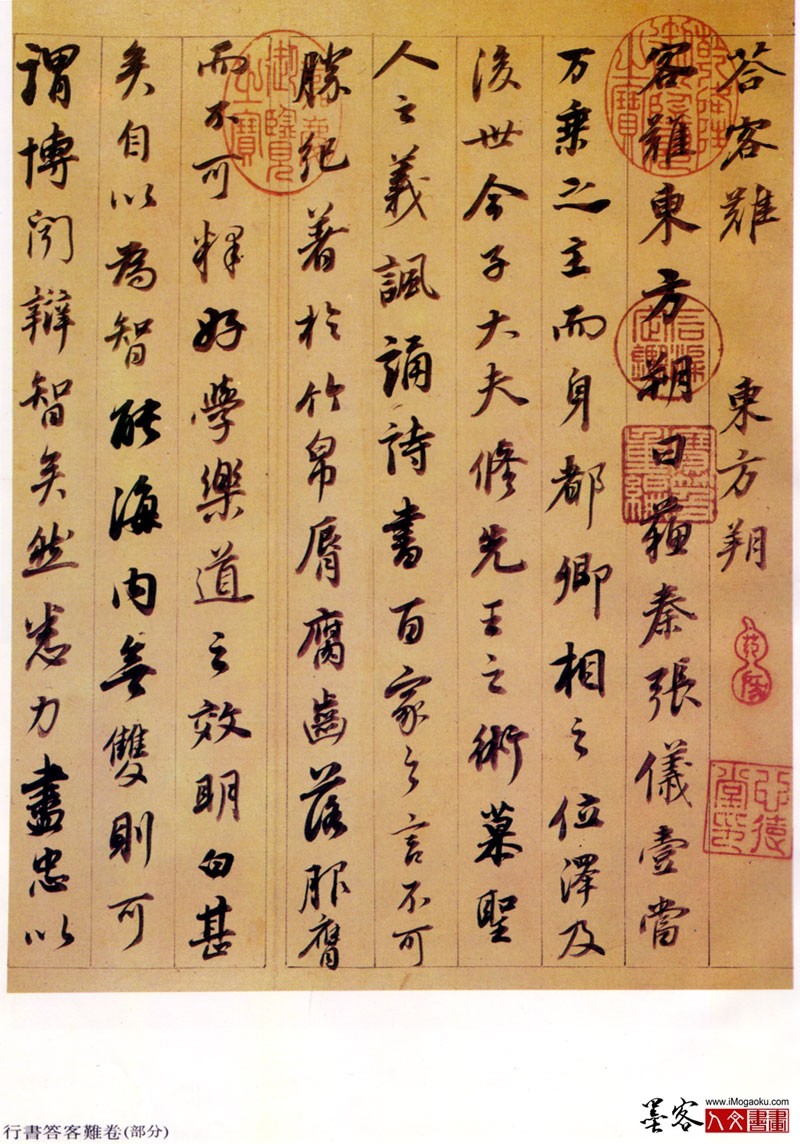 答客難 東方朔
客難東方朔曰蘇秦張儀壹當
万乘之主而身都卿相之位澤及
後世今子大夫修先王之術慕聖
人之義諷誦詩書百家之言不可
勝紀著於竹帛脣腐齒落服膺
而不可釋好學樂道之效明白甚
矣自以為智能海内無雙則可
謂博聞辯智矣然悉力盡忠以
行書答客難卷(部分)
墨客
www.iMogaoku.com
人文書畫